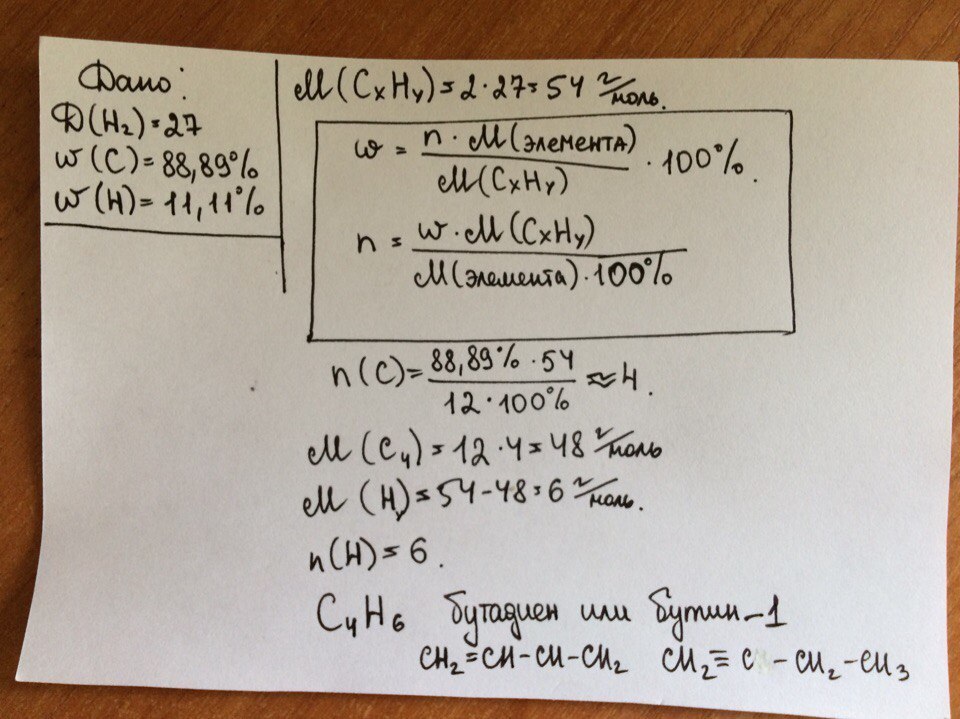 Дано:
D(H₂)=27
w(C)=88,89%
w(H)=11,11%
M(CxHy)=2·27=54 г/моль.
w = n·M(элемента) / M(CxHy) · 100%.
n = w·M(CxHy) / M(элемента)·100%
n(C)= 88,89%·54 / 12·100% ≈4.
M(C₄)=12·4=48 г/моль
M(H)=54-48=6 г/моль.
n(H)=6.
C₄H₆ бутадиен или бутин-1
CH₂=CH-CH-CH₂ CH₂≡C-CH₂-CH₃